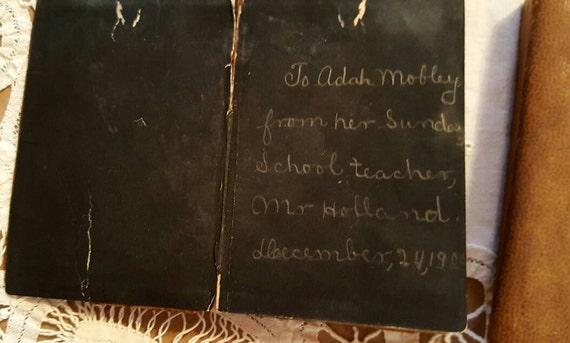 To Adah Mobley
from her Sunday
School teacher,
Mr Holland.
December, 24, 19